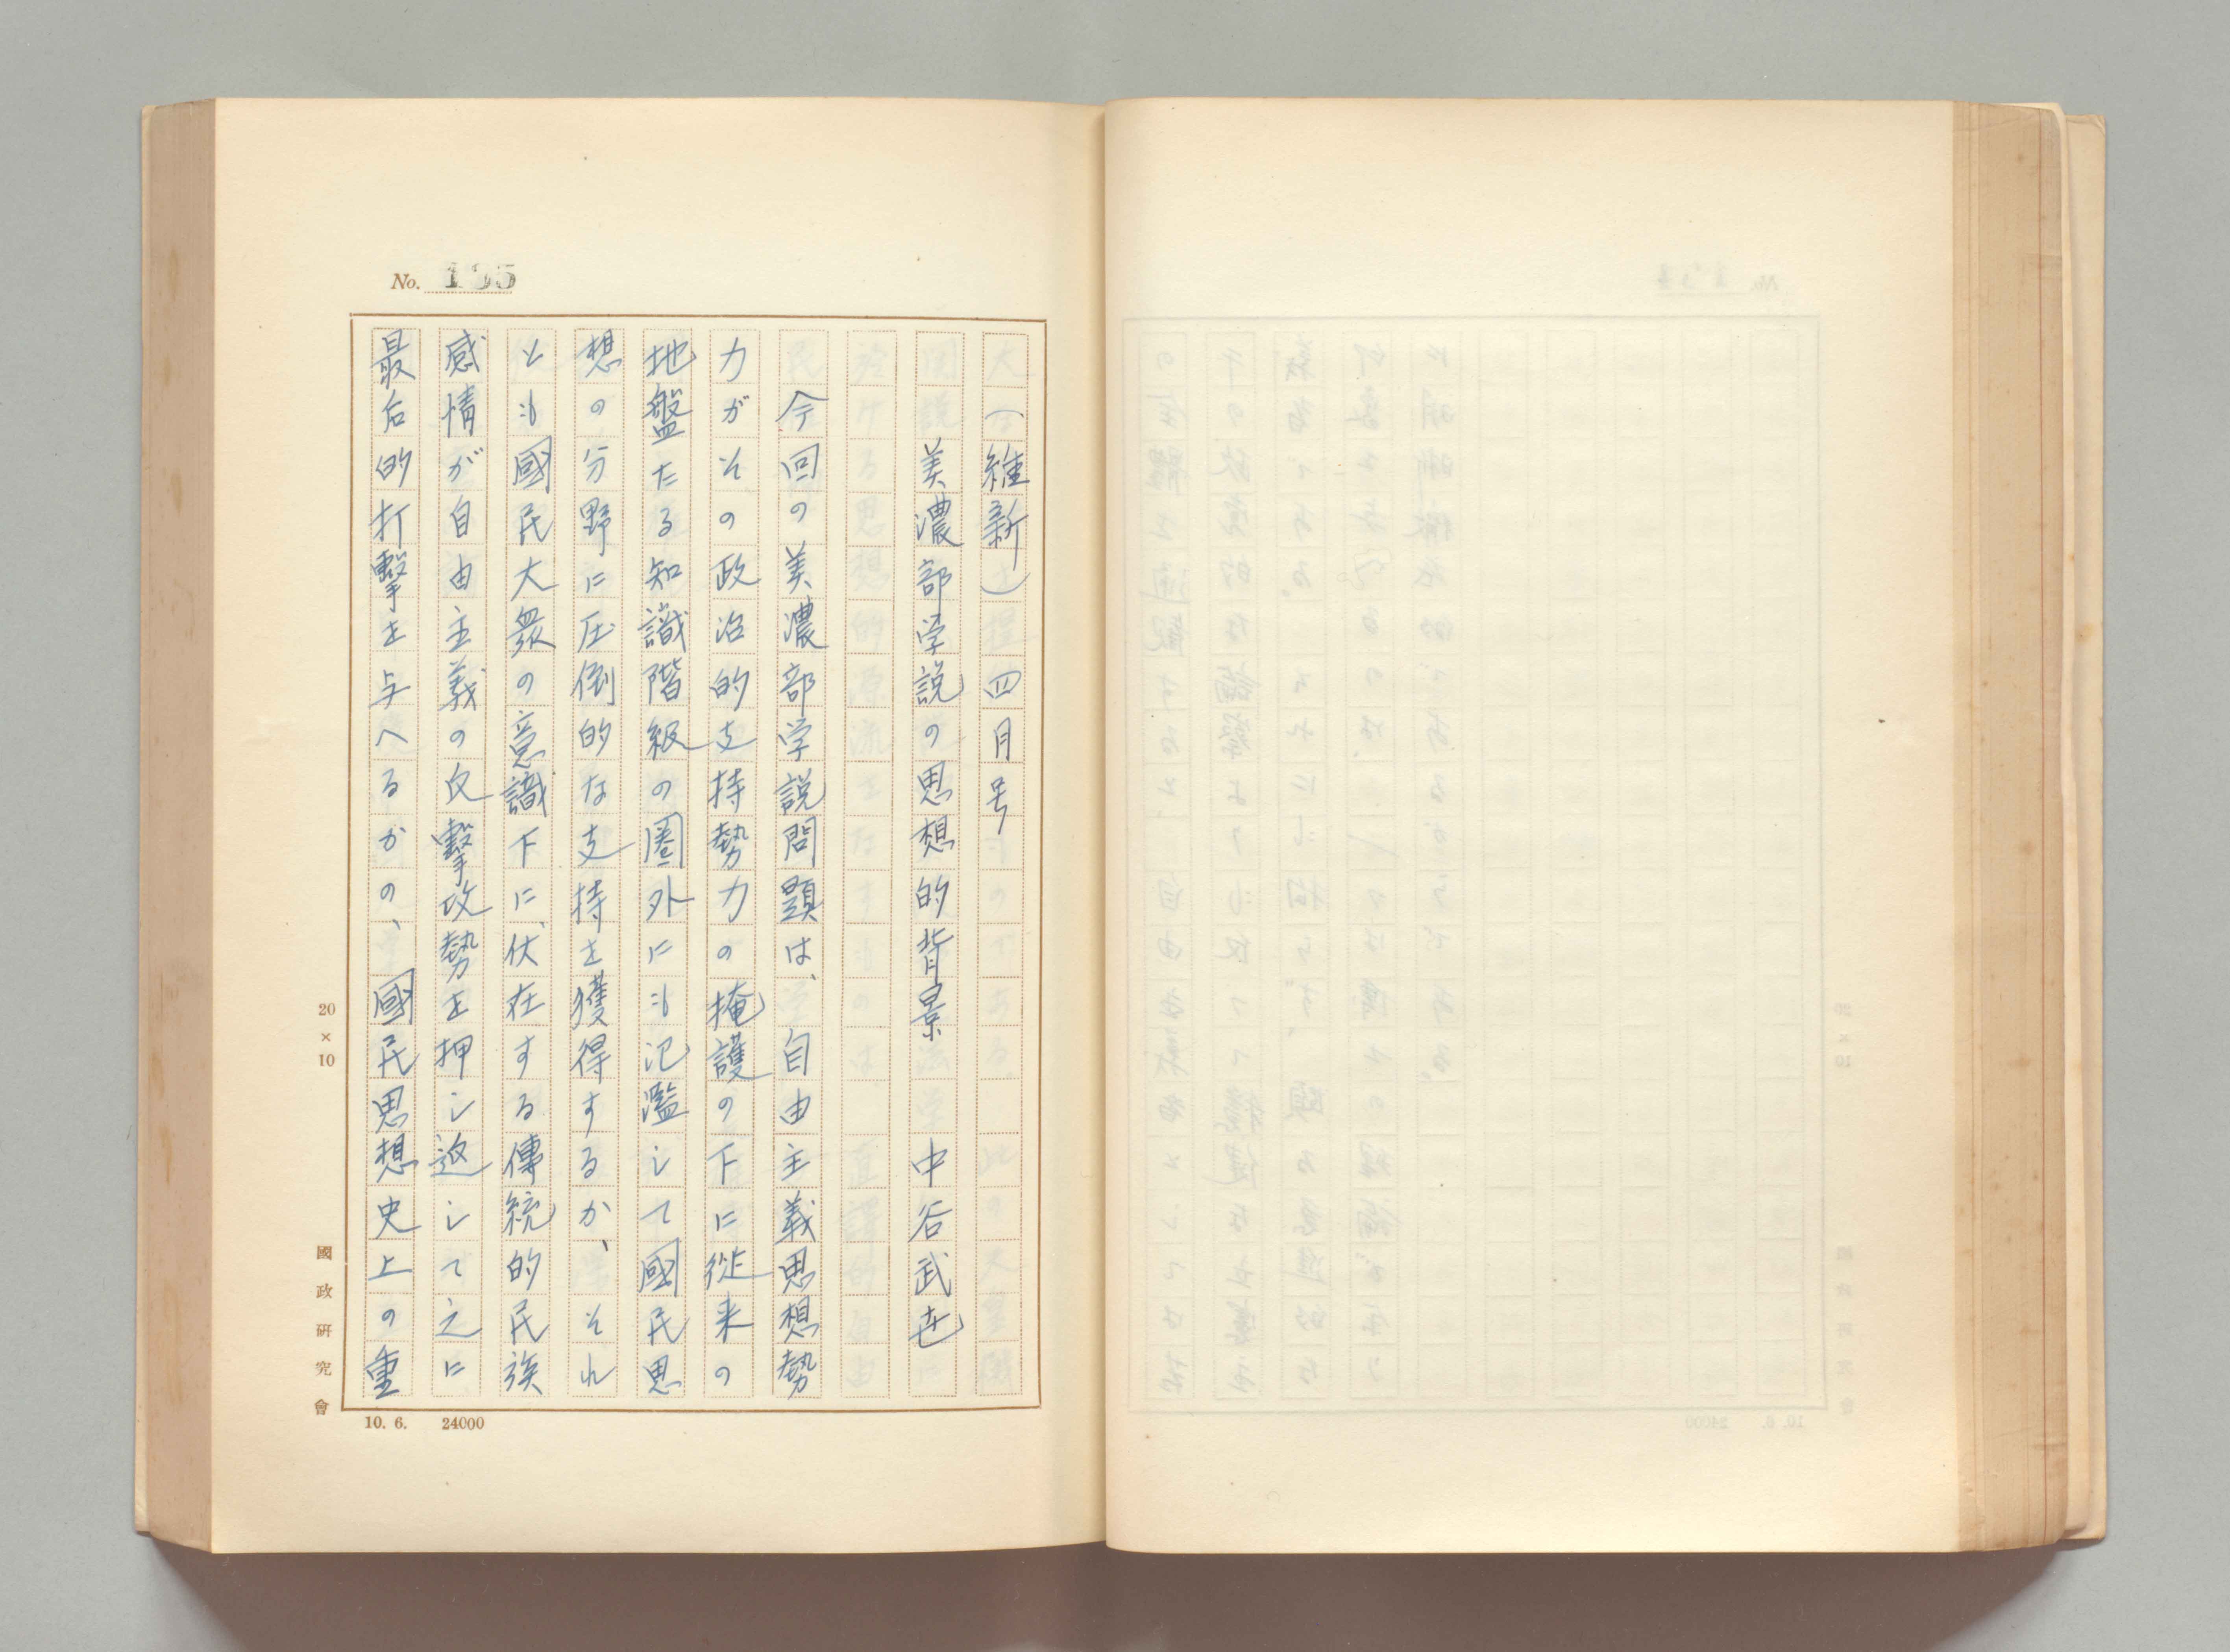 No. 135
(維新) 四月号
美濃部学説の思想的背景 中谷武世
今回の美濃部学説問題は、自由主義思想勢
力がその政治的支持勢力の掩護の下に従来の
地盤たる知識階級の圏外にも氾濫して國民思
想の分野に圧倒的な支持を獲得するか、それ
とも國民大衆の意識下に、伏在する傳統的民族
感情が自由主義の反撃攻勢を押し返して之に
最后的打撃を与へるかの、國民思想史上の重
20×10
國政研究會
10. 6. 24000